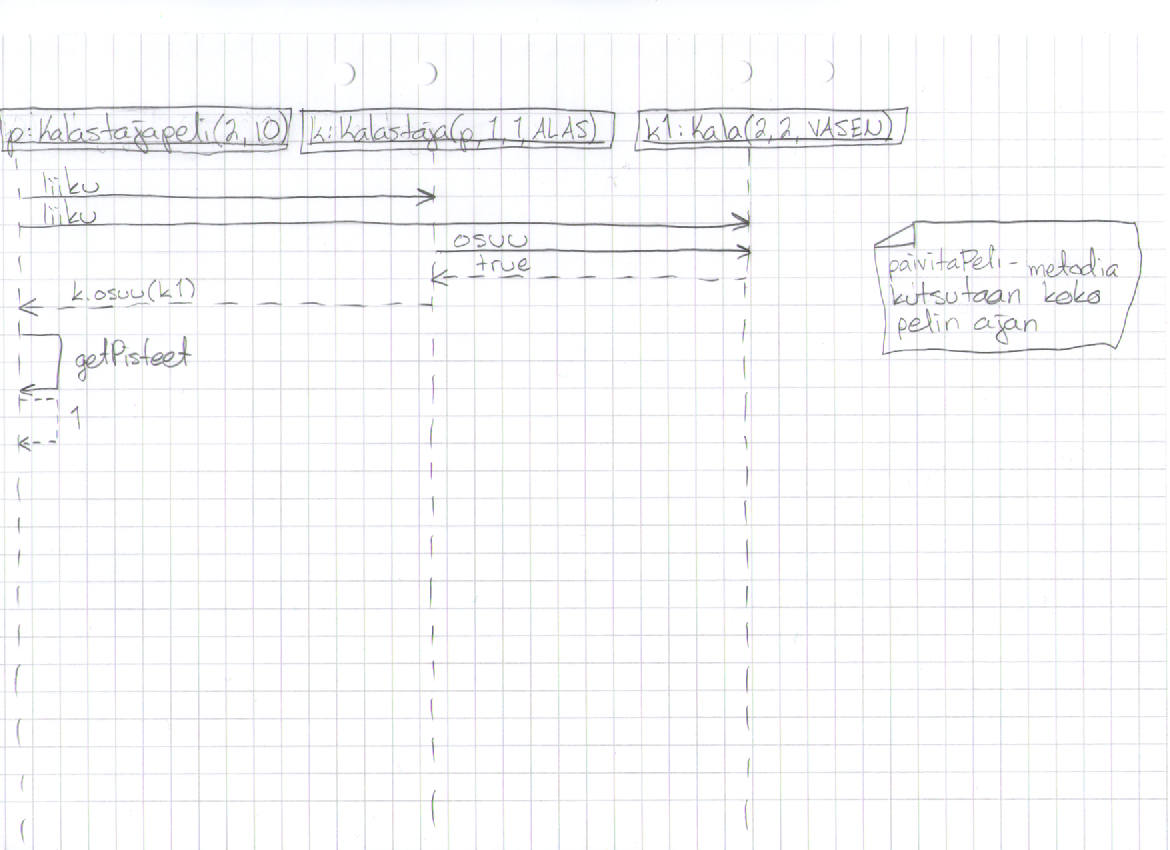 p:Kalastajapeli(2,10) k:Kalastaja(p, 1, 1, ALAS) k1:Kala(2,2, VASEN)
liiku
liiku
osuu
true
k.osuu(k1)
getPisteet
1
päivitäPeli-metodia
kutsutaan koko
pelin ajan